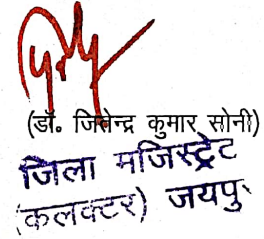 (डॉ. जितेन्द्र कुमार सोनी)
जिला मजिस्ट्रेट
(कलक्टर) जयपु